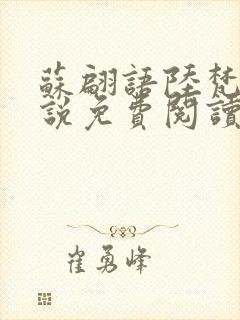 蘇翩語陸梵
說免費閱讀
崔勇峰